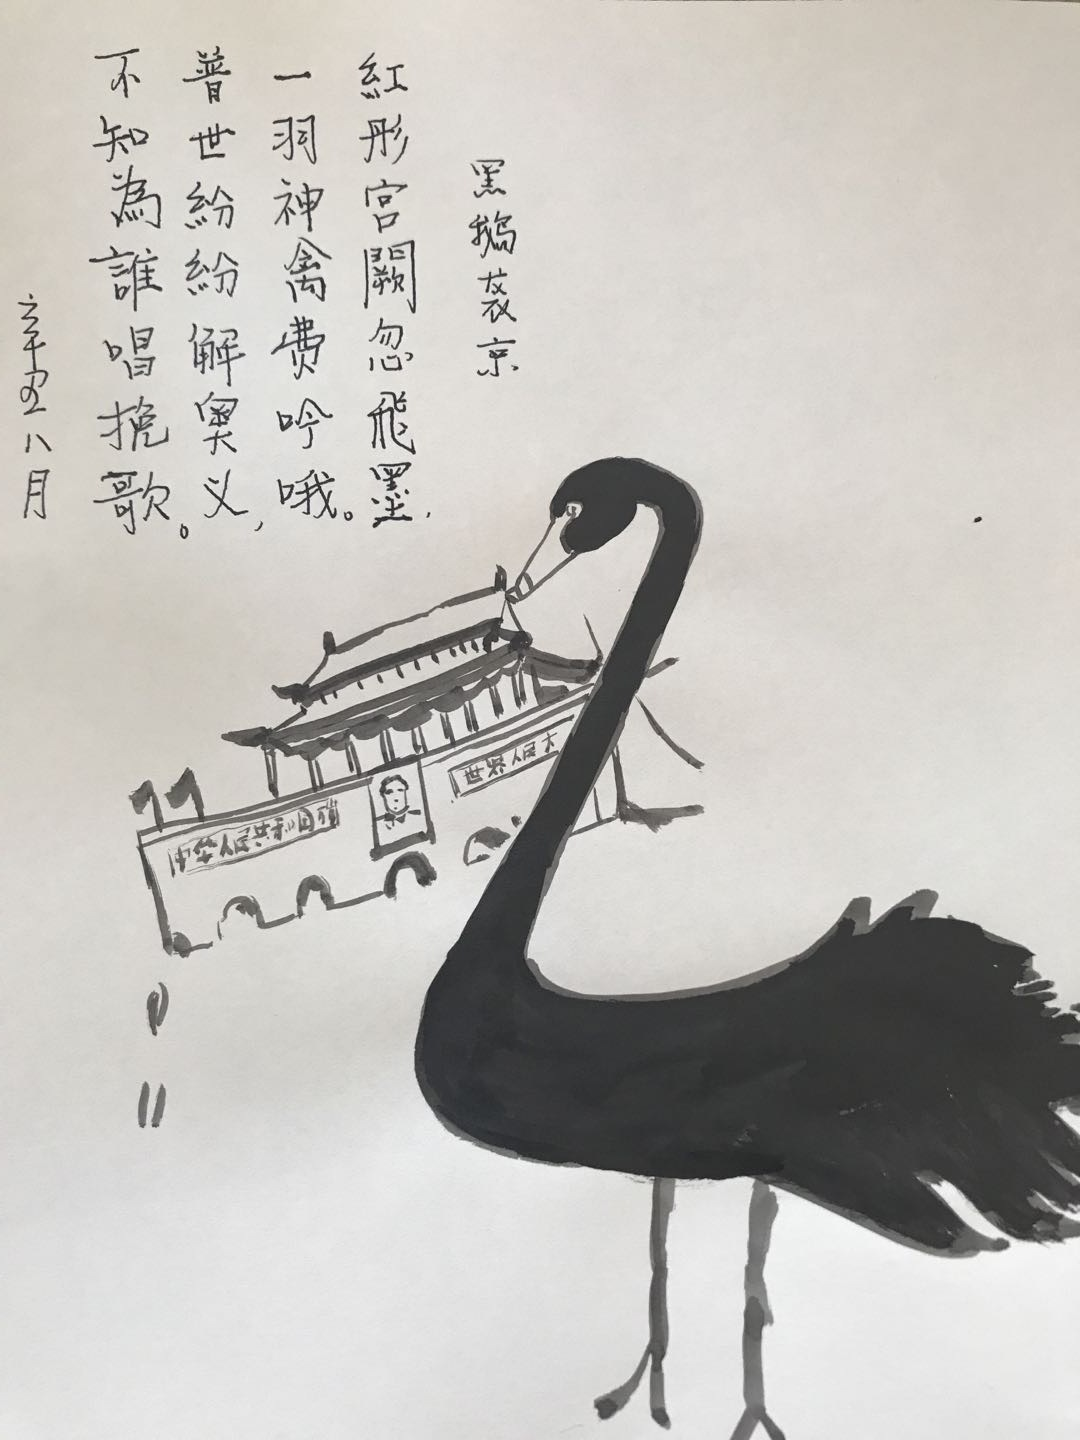 黑鵝袭京
紅彤宮闕忽飛墨,
一羽神禽费吟哦。
普世紛紛解奥义,
不知為誰唱挽歌。
辛丑八月
中华人民共和国
世界人民大